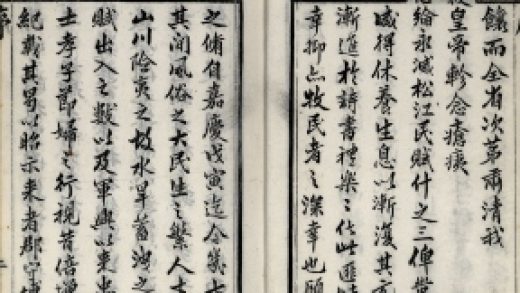 饟而全省次第肅清我
皇帝軫念瘡痍
綸永減松江民賦什之三俾
咸得休養生息以漸復其元
漸進於詩書禮樂之化此匪
幸抑亦牧民者之深幸也願
之脩自嘉慶戊寅迄今幾
其間風俗之大民生之繁人
山川險夷之故水旱蓄洩之
賦出入之數以及軍興以來忠
士孝子節婦之行視昔倍增
紀載其曷以昭示來者郡守博